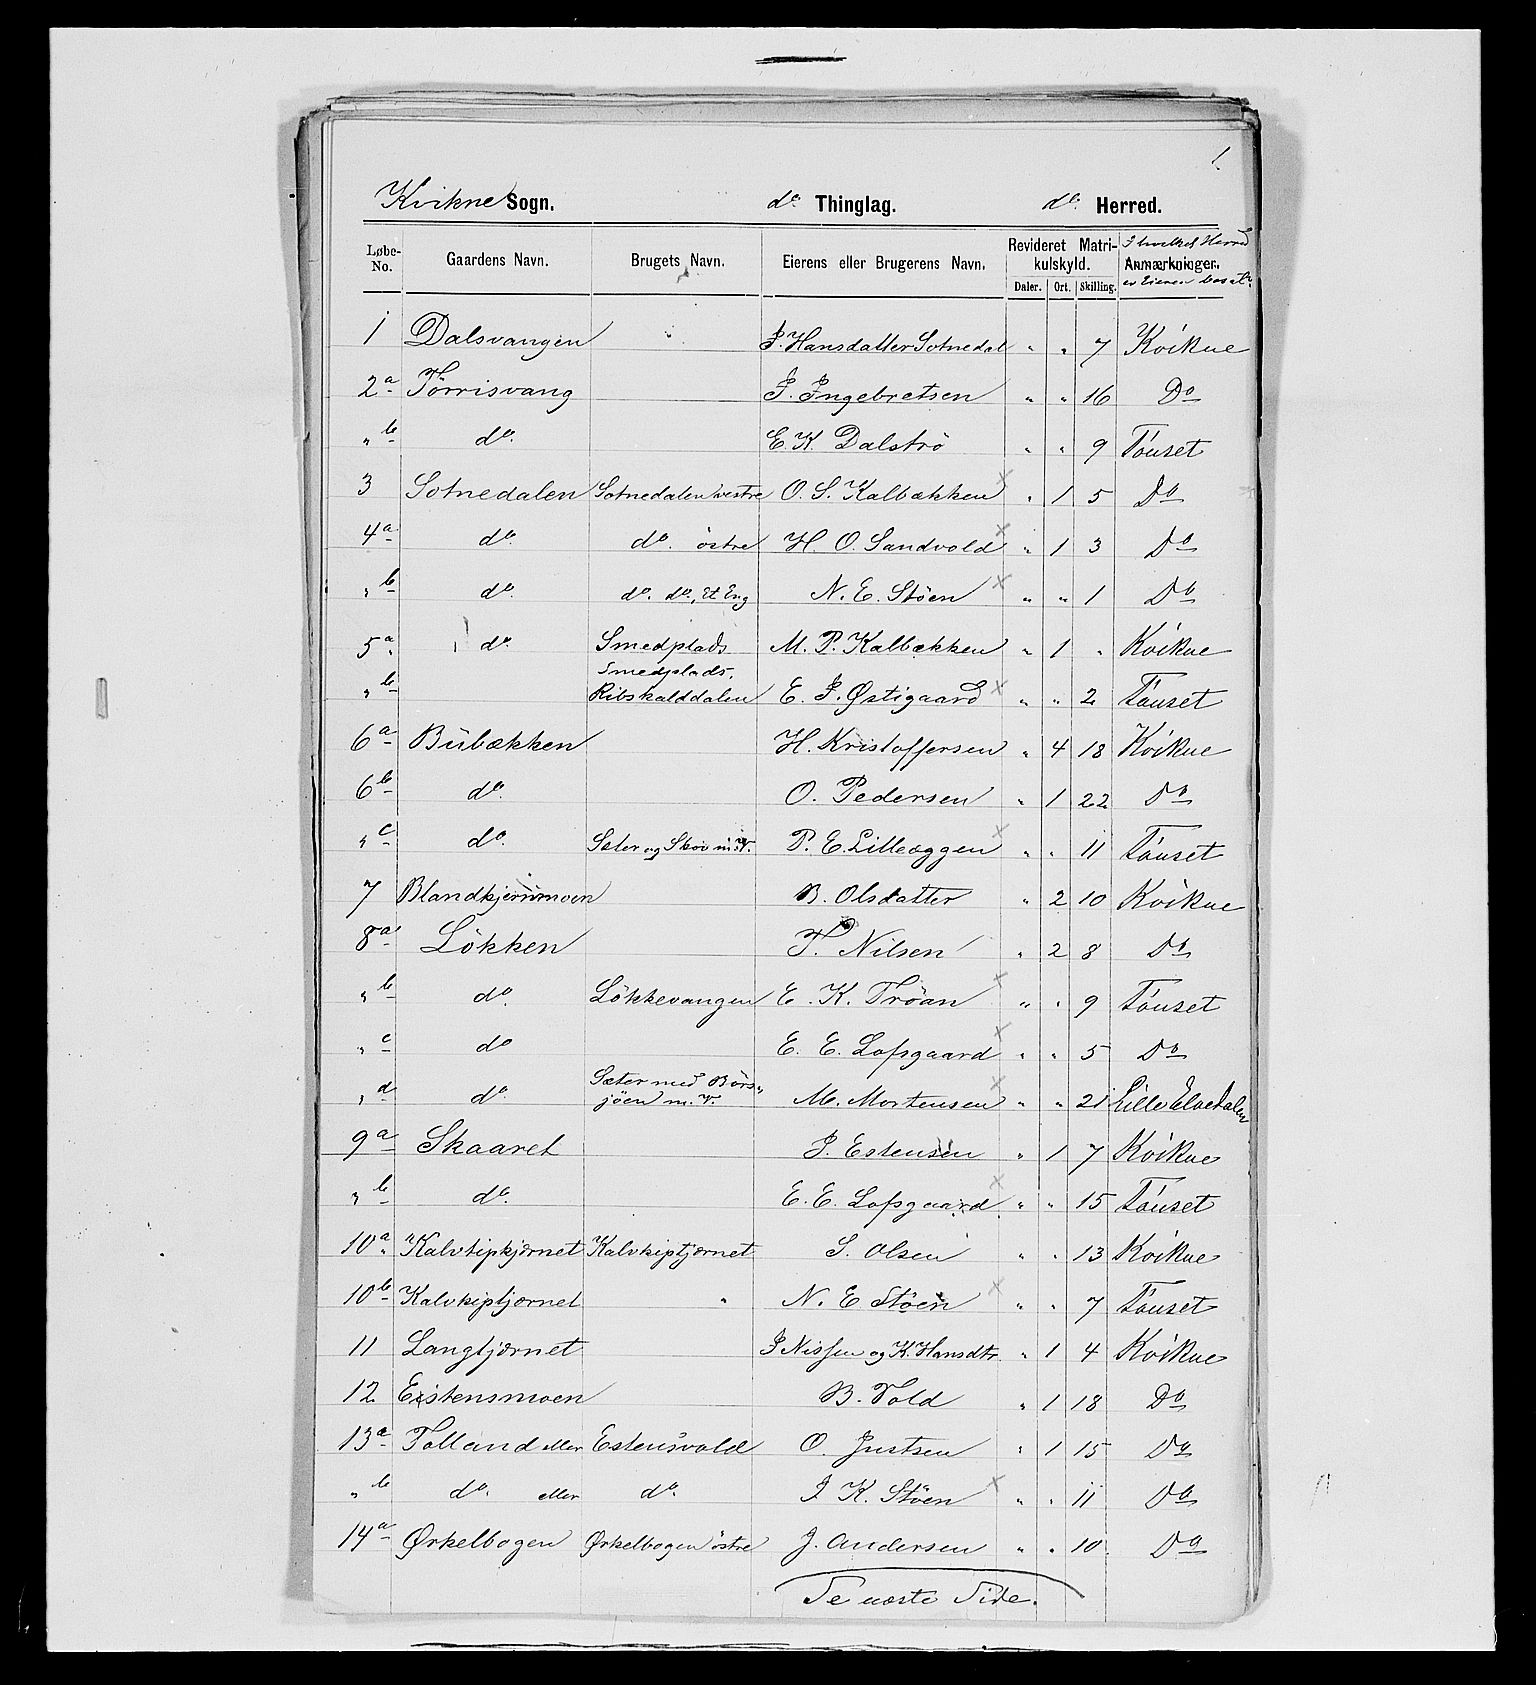 1.
Kvikne Sogn. do Thinglag. do. Herred.
Løbe-No. Gaardens Navn. Brugets Navn. Eierens eller Brugerens Navn. Revideret Matrikulskyld. Daler. Ort. Skilling. I hvilket Herred Anmærkninger. er Eieren bosat.
1 Dalsvangen " J. Hansdatter Sotnedal " " 7 Kvikne
2a Törrisvang J. Ingebretsen " " 16 Do
" b do. E. K. Dalströ " " 9 Tönset
3 Sotnedalen Sotnedalen vestre O. S. Kalbækken × " 1 5 Do
4a do. do. östre H. O. Sandvold × " 1 3 Do
" b do. do. do., Et Eng N. E. Stöen × " " 1 Do
5a do. Smedplads M. P. Kalbækken " 1 " Kvikne
" b Smedplads, Ribskalddalen E. J. Østigaard × " " 2 Tönset
6a Bubækken H. Kristoffersen " 4 18 Kvikne
6b do. O. Pedersen " 1 22 Do
" c do. Sæter og Skov m. V. P. E. Lilleøggen × " " 11 Tönset
7 Blandkjernmoen B. Olsdatter " 2 10 Kvikne
8a Lökken T. Nilsen " 2 8 Do
" b do. Lökkevangen E. K. Tröan × " " 9 Tönset
" c do E. E. Lofsgaard × " " 5 Do
" d do. Sæter med Börsjöen m. V. M. Mortensen × " " 21 Lille Elvedalen
9a Skaaret J. Estensen " 1 7 Kvikne
" b do. E. E. Lofsgaard × " " 15 Tönset
10a Kalvtipkjærnet Kalvkiptjærnet S. Olsen " " 13 Kvikne
10b Kalvkiptjærnet " N. E Stöen × " " 7 Tönset
11 Langtjærnet J Nilsen og K. Hansdtr. " 1 4 Kvikne
12 Estensmoen B. Vold " 1 18 Do
13a Folland eller Estensvold O. Justsen " 1 15 Do
" b do. eller do. J K. Stöen × " " 11 Do
14a Ørkelbogen Ørkelbogen östre J. Andersen " " 10 Do
Se næste Side.